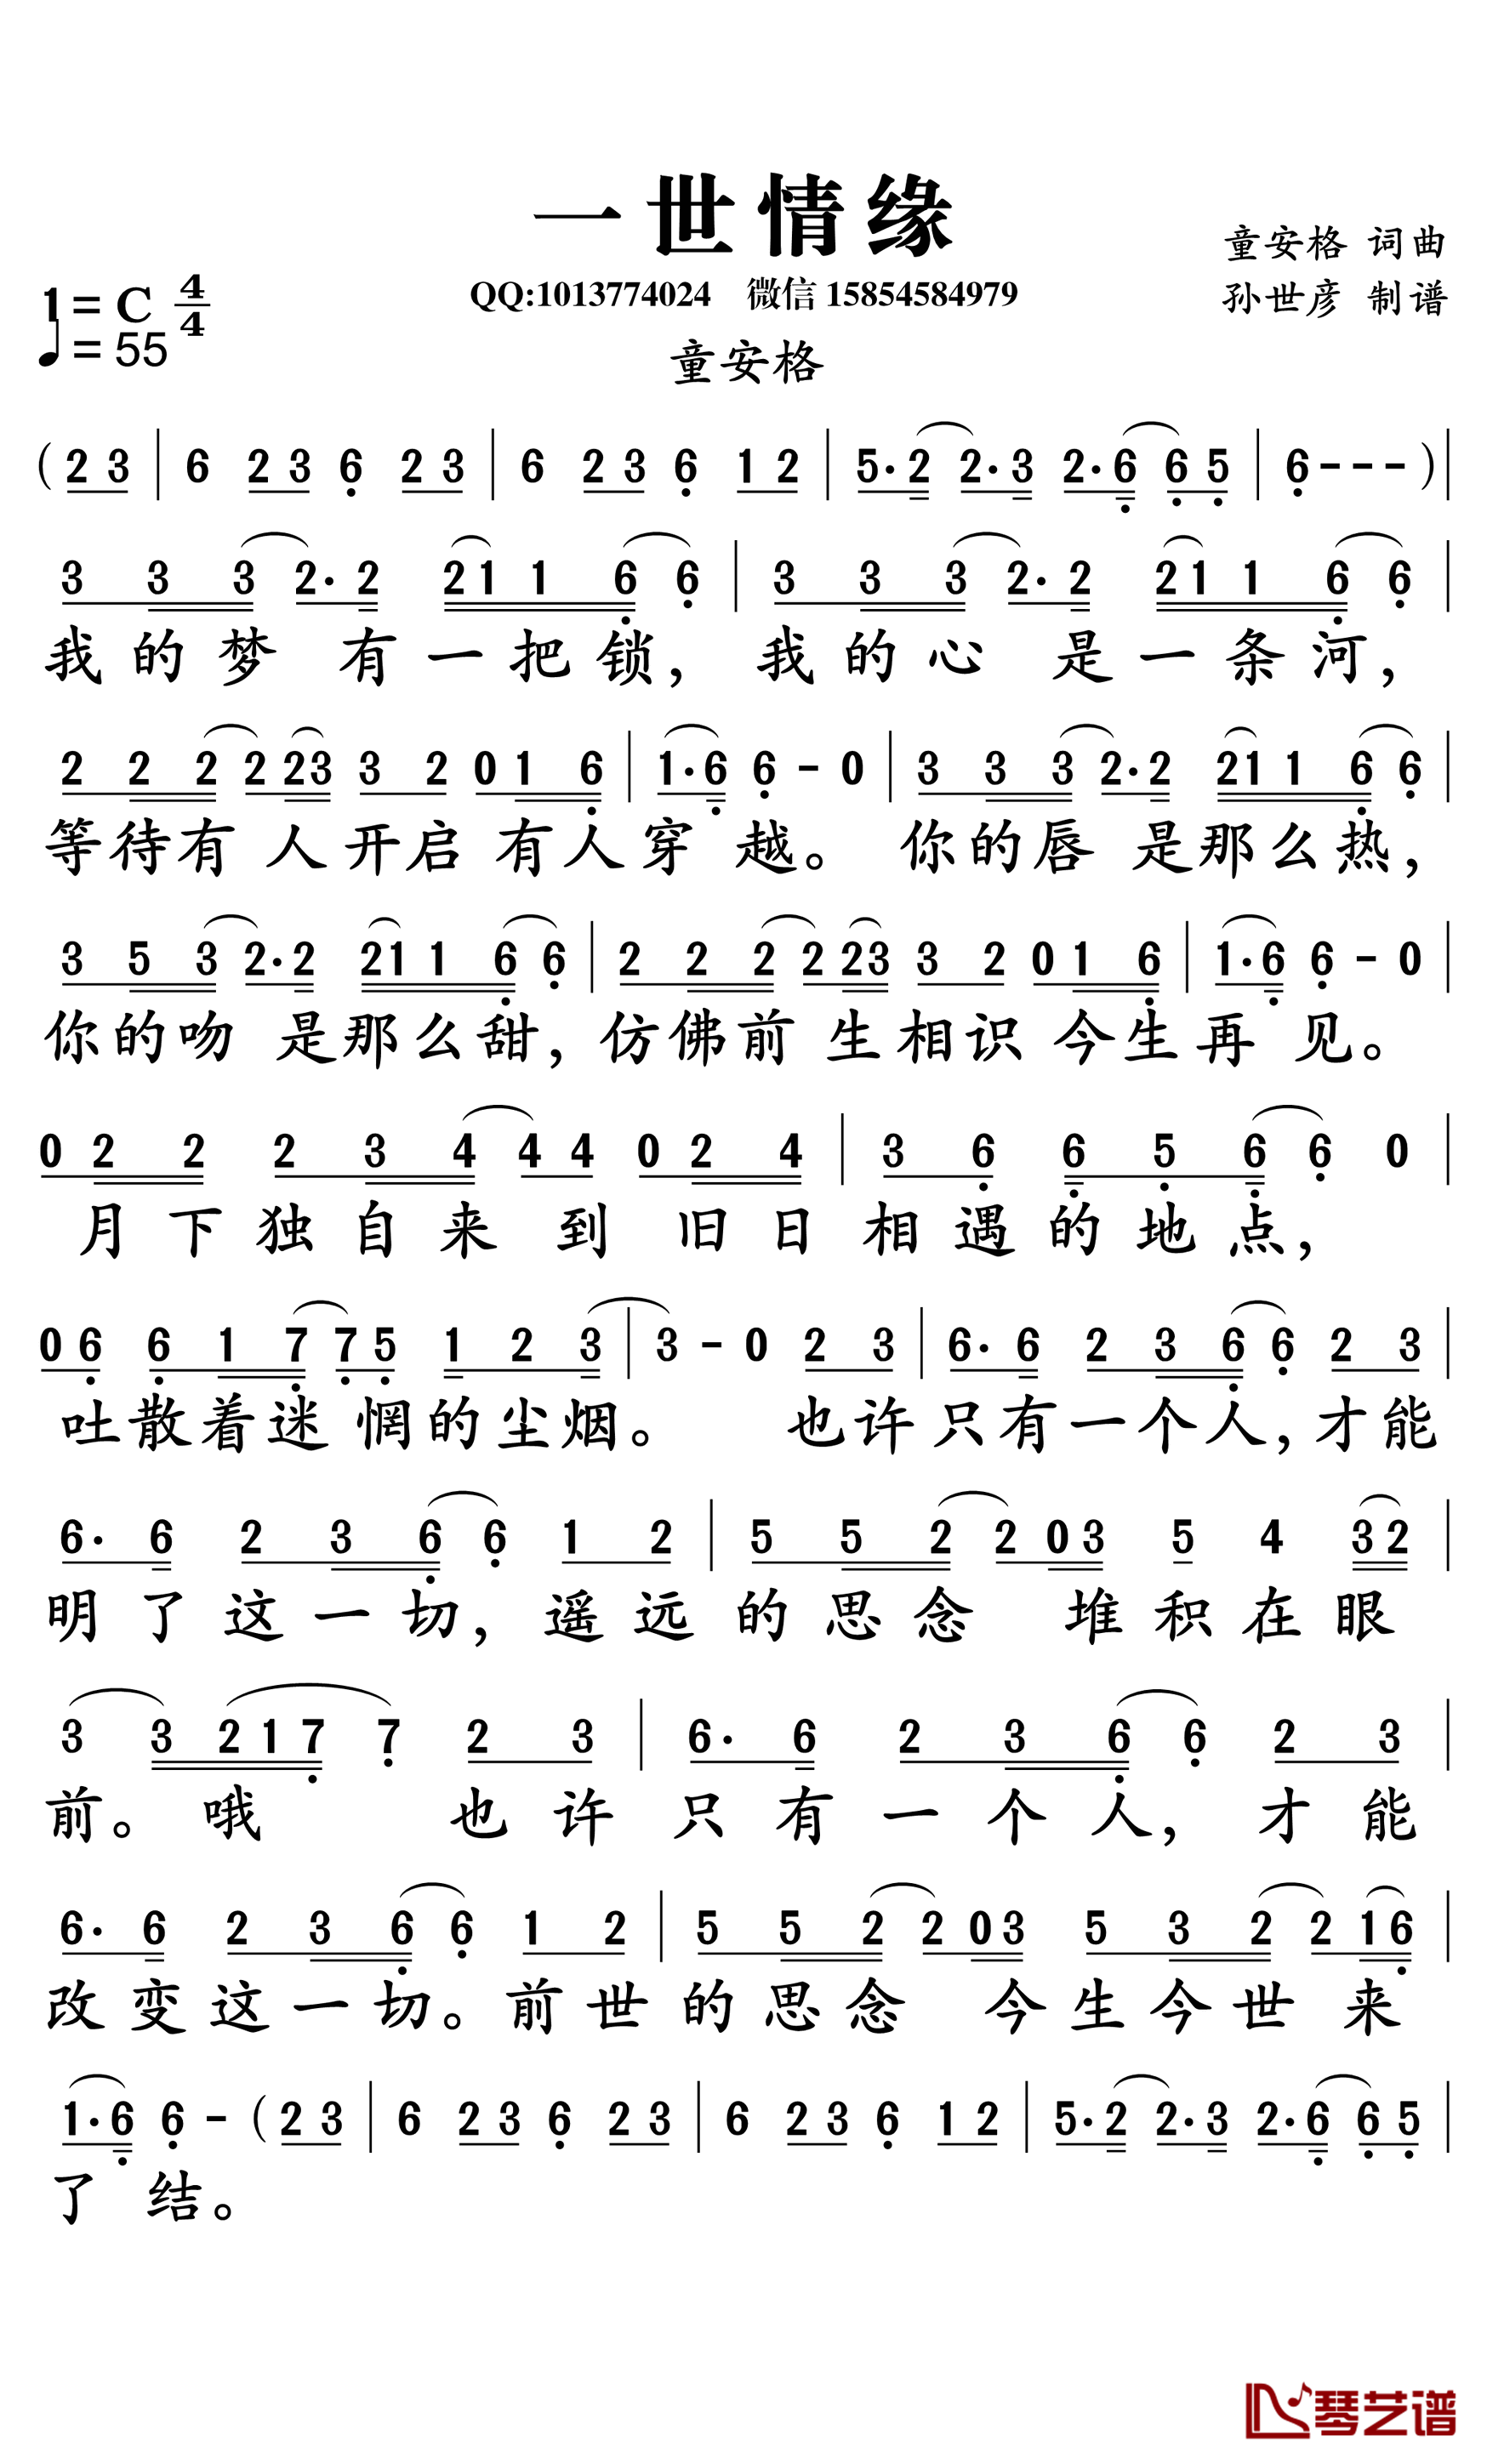 一世情缘
童安格 词曲
1=C 4/4
QQ:1013774024 微信 15854584979
孙世彦 制谱
♩=55
童安格
(23|6 23 6 23|6 23 6 12|5·2 2·3 2·6 65|6---)|
3 3 3 2·2 211 6 6|3 3 3 2·2 211 6 6|
我的梦 有一把锁，我的心 是一条河，
2 2 2 223 3 2 01 6|1·6 6-0|3 3 3 2·2 211 6 6|
等待有 人开启 有人穿 越。 你的唇 是那么热，
3 5 3 2·2 211 6 6|2 2 2 223 3 2 01 6|1·6 6-0|
你的吻 是那么甜，仿佛前 生相识 今生再 见。
02 2 2 3 4 44 02 4|3 6 6 5 6 6 0|
月下独自来到旧日相遇的地点，
06 6 1 7 75 1 2 3|3-0 2 3|6·6 2 3 6 6 2 3|
吐散着迷 惘的尘烟。 也许只有一个人，才能
6·6 2 3 6 6 1 2|5 5 2 203 5 4 32|
明了这一切，遥远的思念 堆积在眼
3 3 2 1 7 7 2 3|6·6 2 3 6 6 2 3|
前。哦 也许只有一个人，才能
6·6 2 3 6 6 1 2|5 5 2 203 5 3 2 216|
改变这一切。前世的思念 今生今世 来
1·6 6-(23|6 23 6 23|6 23 6 12|5·2 2·3 2·6 65|
了 结。
琴艺谱